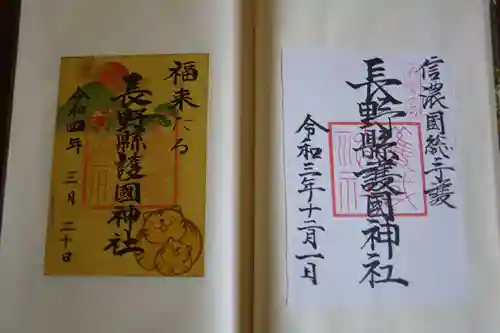 信濃國総守護
長野縣護國神社
令和三年十二月一日
福来たる
長野縣護國神社
令和四年 三月 二十日